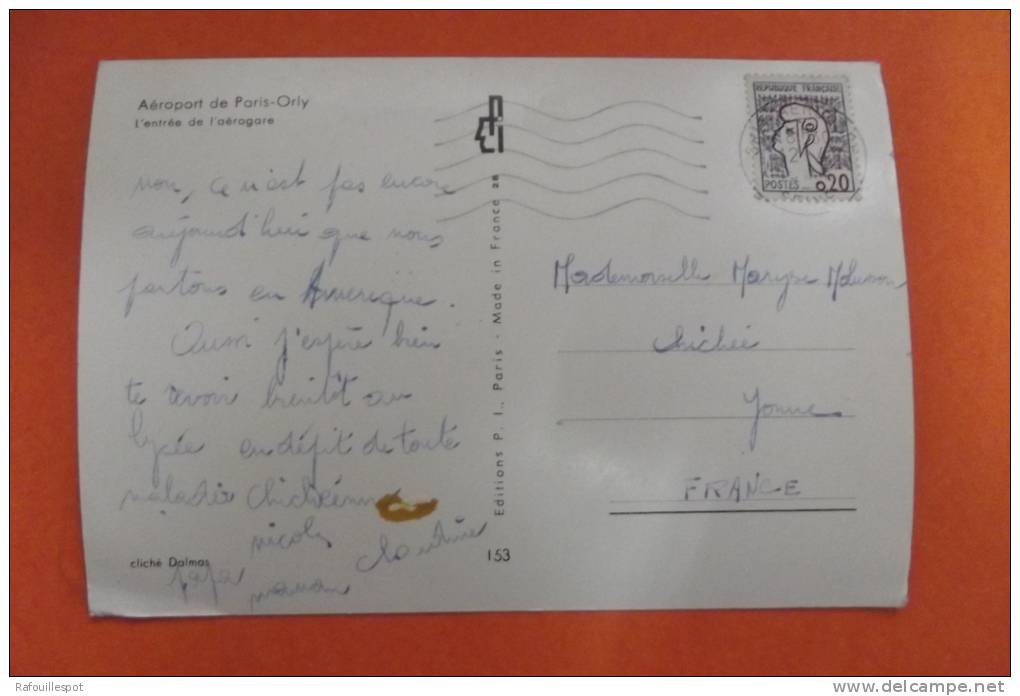 Aéroport de Paris-Orly
L'entrée de l'aérogare
non, ce n'est pas encore
aujourd'hui que nous
partons en Amérique.
Aussi j'espère bien
te revoir bientôt au
lycée en dépit de toute
maladie Chichéenne
nicole
Claudine
papa
maman
cliché Dalmas
153
Editions P. I., Paris - Made in France 28
REPUBLIQUE FRANÇAISE
POSTES 0,20
Mademoiselle Maryse
Chichée
Yonne
FRANCE
Rafouillespot
delcampe.net